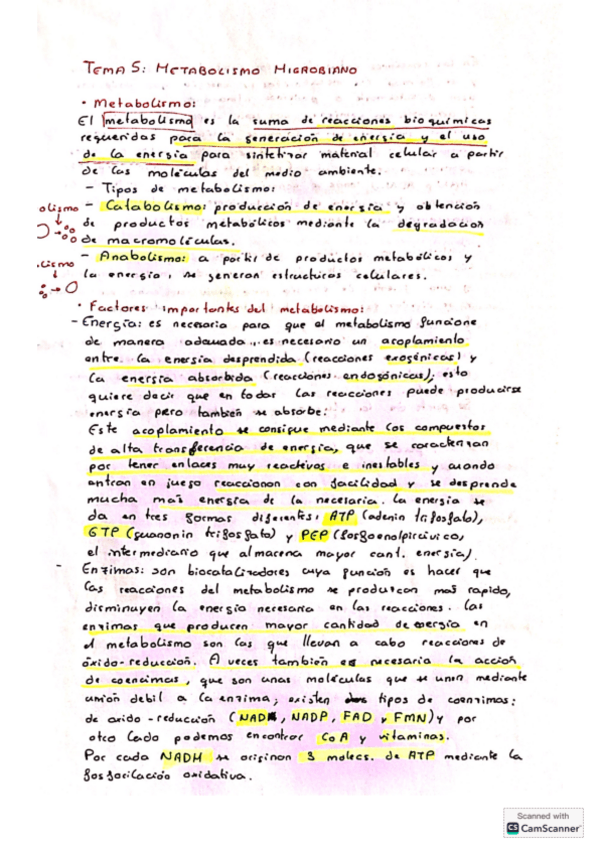 TEMA 5: METABOLISMO MICROBIANO
· Metabolismo:
El metabolismo es la suma de reacciones bioquimicas
requeridas para la generación de energía y el uso
de la energia para sintetizar material celular a partir
de las moléculas del medio ambiente.
- Tipos de metabolismo:
olismo
- Catabolismo: producción de energía y obtención
de productos metabólicos mediante la degradacion
de macromoléculas.
olismo
- Anabolismo: a partir de productos metabólicos y
la energía, se generan estructuras celulares.
· Factores importantes del metabolismo:
- Energía: es necesaria para que el metabolismo funcione
de manera adecuada, es necesario un acoplamiento
entre la energía desprendida (reacciones exogénicas) y
la energía absorbida (reacciones endogónicas), esto
quiere decir que en todas las reacciones puede producirse
energía pero también se absorbe:
Este acoplamiento se consigue mediante los compuestos
de alta transferencia de energía, que se caracterizan
por tener enlaces muy reactivos e inestables y cuando
entran en juego reaccionan con facilidad y se desprende
mucha más energía de la necesaria. La energía se
da en tres formas diferentes, ATP (adenin trifosfato),
GTP (guanonin trifosfato) y PEP (fosfoenolpirúvico,
el intermediario que almacena mayor cant. energía).
- Enzimas: son biocatalizadores cuya función es hacer que
las reacciones del metabolismo se produzcan más rapido,
disminuyen la energía necesaria en las reacciones. Las
enzimas que producen mayor cantidad de energía en
el metabolismo son las que llevan a cabo reacciones de
óxido-reducción. A veces también es necesaria la acción
de coenzimas, que son unas moléculas que se unen mediante
unión debil a la enzima; existen dos tipos de coenzimas:
de oxido-reducción (NAD, NADP, FAD y FMN) y por
otro lado podemos encontrar CoA y vitaminas.
Por cada NADH se originan 3 molecs. de ATP mediante la
fosforilación oxidativa.
Scanned with
CS CamScanner